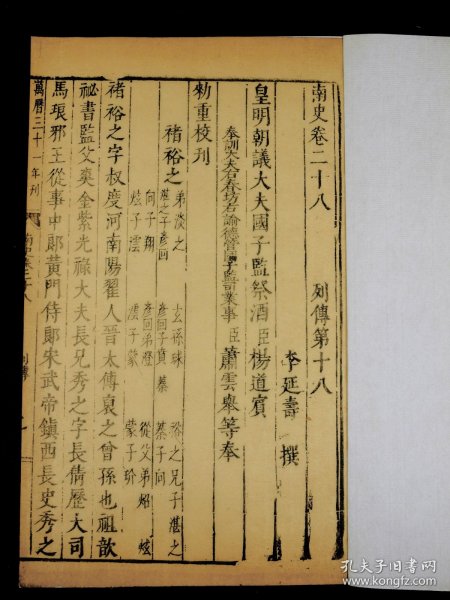 南史卷二十八　列傳第十八
李延壽　撰
皇明朝議大夫國子監祭酒臣楊道賓
奉訓大夫右春坊右諭德管國子監司業事臣蕭雲舉等奉
勅重校刊
褚裕之
弟淡之　玄孫球　裕之兄子湛之
湛之子彥回　彥回子賁　蓁　蓁子向
向子翔　彥回弟澄　從父弟炤　炫
炫子澐　澐子蒙　蒙子玠
褚裕之字叔度河南陽翟人晉太傅裒之曾孫也祖歆
祕書監父爽金紫光祿大夫長兄秀之字長倩歷大司
馬琅邪王從事中郎黃門侍郎宋武帝鎮西長史秀之
萬曆三十一年刊
列傳
孔夫子旧书网
kongfz.com